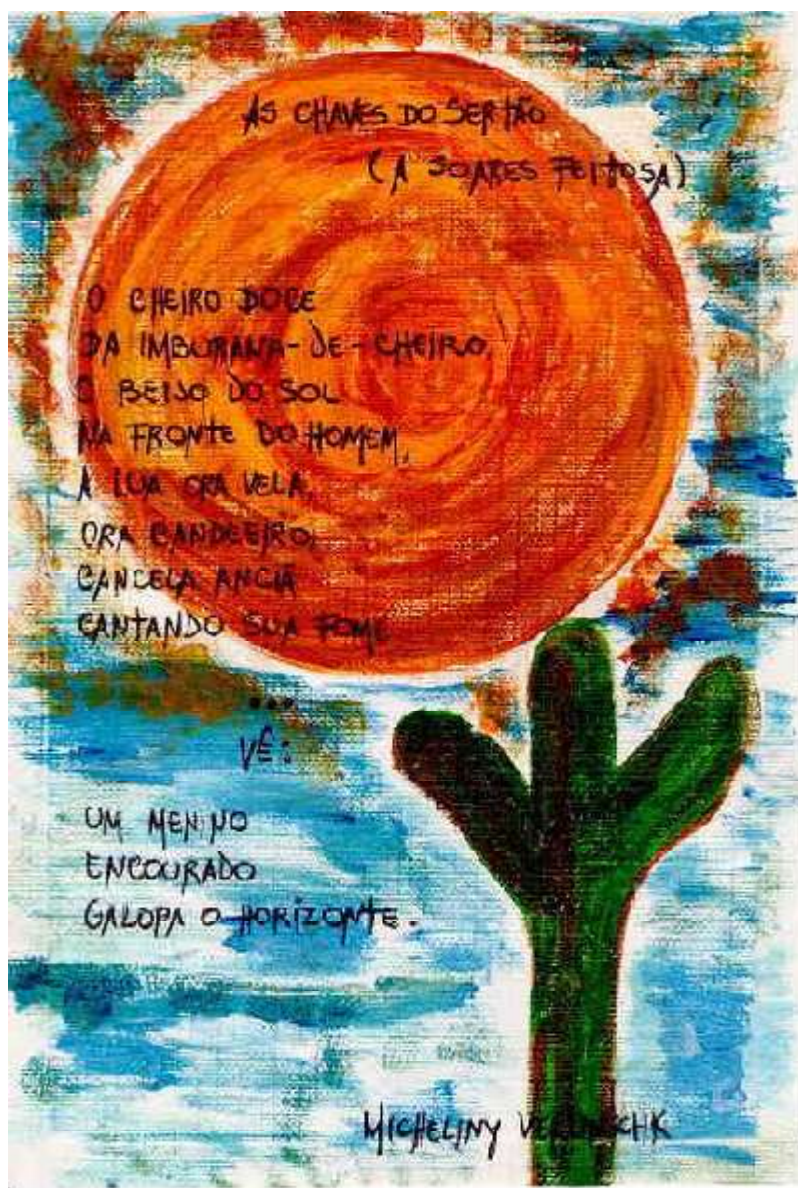 AS CHAVES DO SERTÃO
(A SOARES FEITOSA)
O CHEIRO DOCE
DA IMBURANA-DE-CHEIRO,
O BEIJO DO SOL
NA FRONTE DO HOMEM,
A LUA ORA VELA,
ORA CANDEEIRO,
CANCELA ANCIÃ
CANTANDO SUA FOME
...
VÊ:
UM MENINO
ENCOURADO
GALOPA O HORIZONTE.
MICHELINY